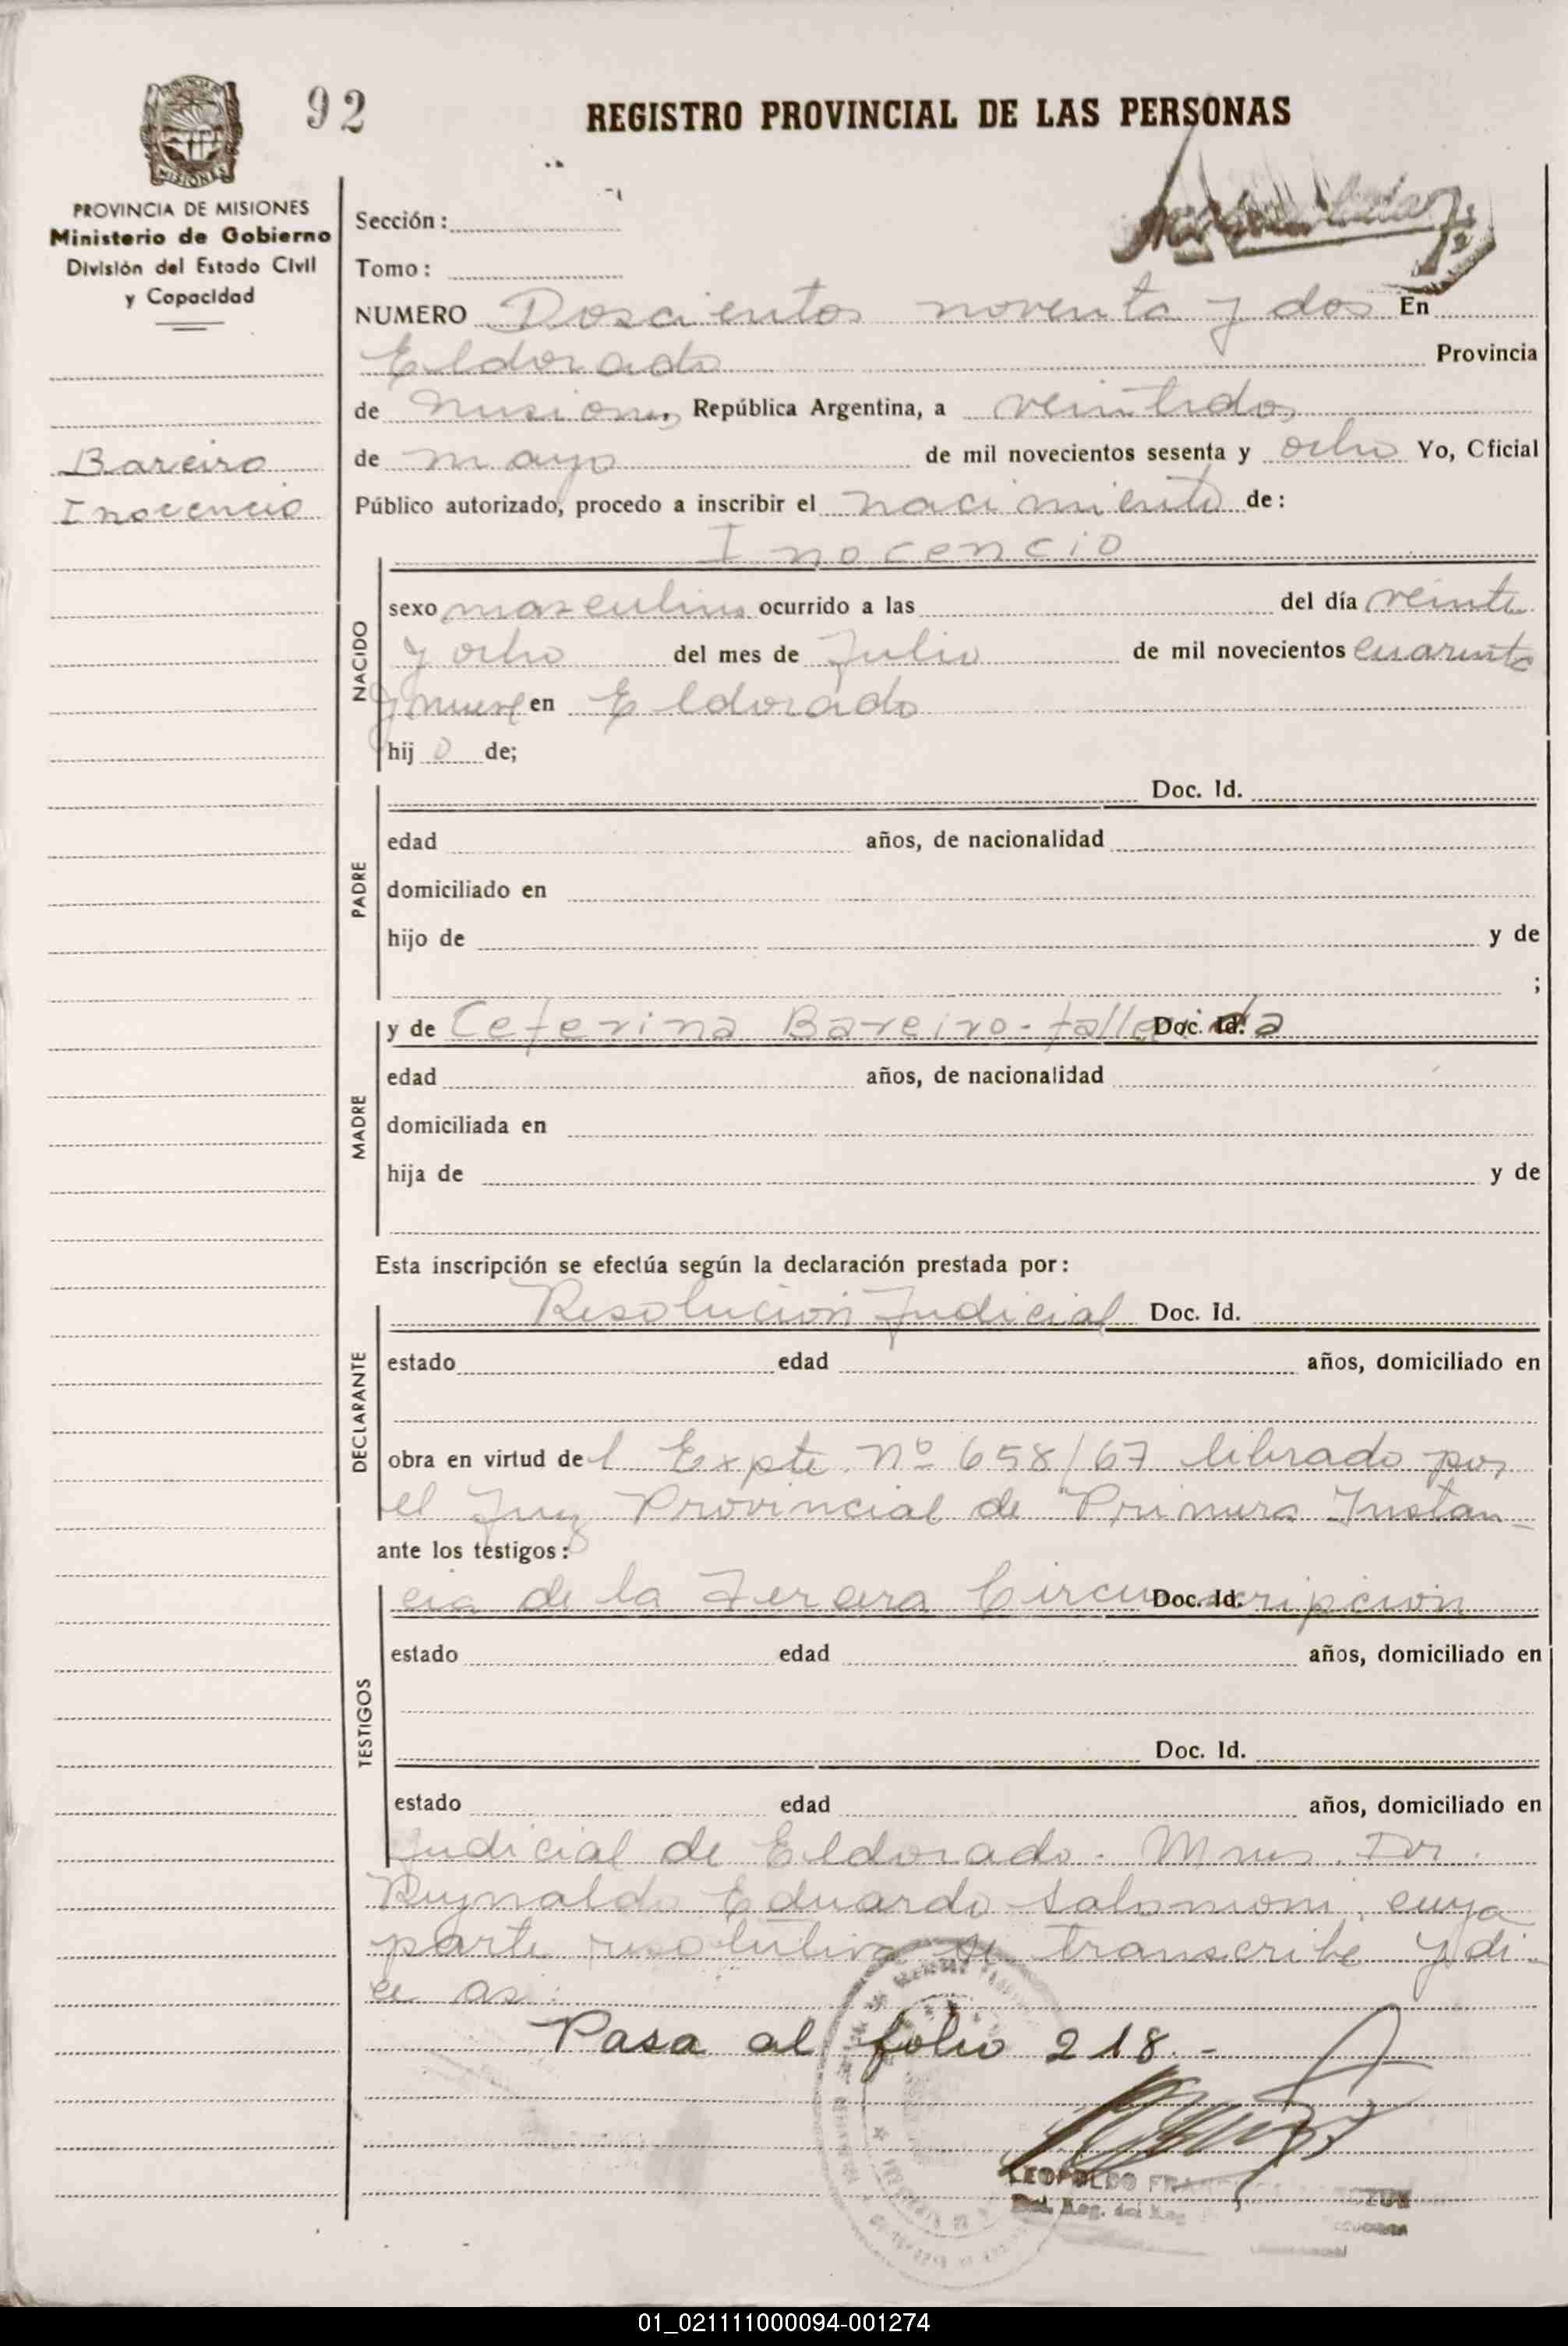 92
REGISTRO PROVINCIAL DE LAS PERSONAS
MISIONES
PROVINCIA DE MISIONES
Ministerio de Gobierno
División del Estado Civil
y Capacidad
Bareiro
Inocencio
Sección:
Tomo:
NUMERO Doscientos noventa y dos En
Eldorado Provincia
de Misiones, República Argentina, a veintidos
de mayo de mil novecientos sesenta y ocho Yo, Oficial
Público autorizado, procedo a inscribir el nacimiento de:
Inocencio
NACIDO
sexo masculino ocurrido a las del día veinte
y ocho del mes de Julio de mil novecientos cuarenta
y nueve en Eldorado
hij o de;
PADRE
Doc. Id.
edad años, de nacionalidad
domiciliado en
hijo de y de
;
MADRE
y de Ceferina Bareiro - fallecida Doc. Id.
edad años, de nacionalidad
domiciliada en
hija de y de
Esta inscripción se efectúa según la declaración prestada por:
DECLARANTE
Resolución Judicial Doc. Id.
estado edad años, domiciliado en
obra en virtud de l Expte. Nº 658/67 librado por
el Juz Provincial de Primera Instan-
ante los testigos:
TESTIGOS
cia de la Tercera Circunscripción Doc. Id.
estado edad años, domiciliado en
Doc. Id.
estado edad años, domiciliado en
Judicial de Eldorado. Mnes. Dr.
Reynaldo Eduardo Salomoni, cuya
parte resolutiva se transcribe y di-
ce asi:
Pasa al folio 218.-
LEOPOLDO
Del. Reg. del
01_021111000094-001274